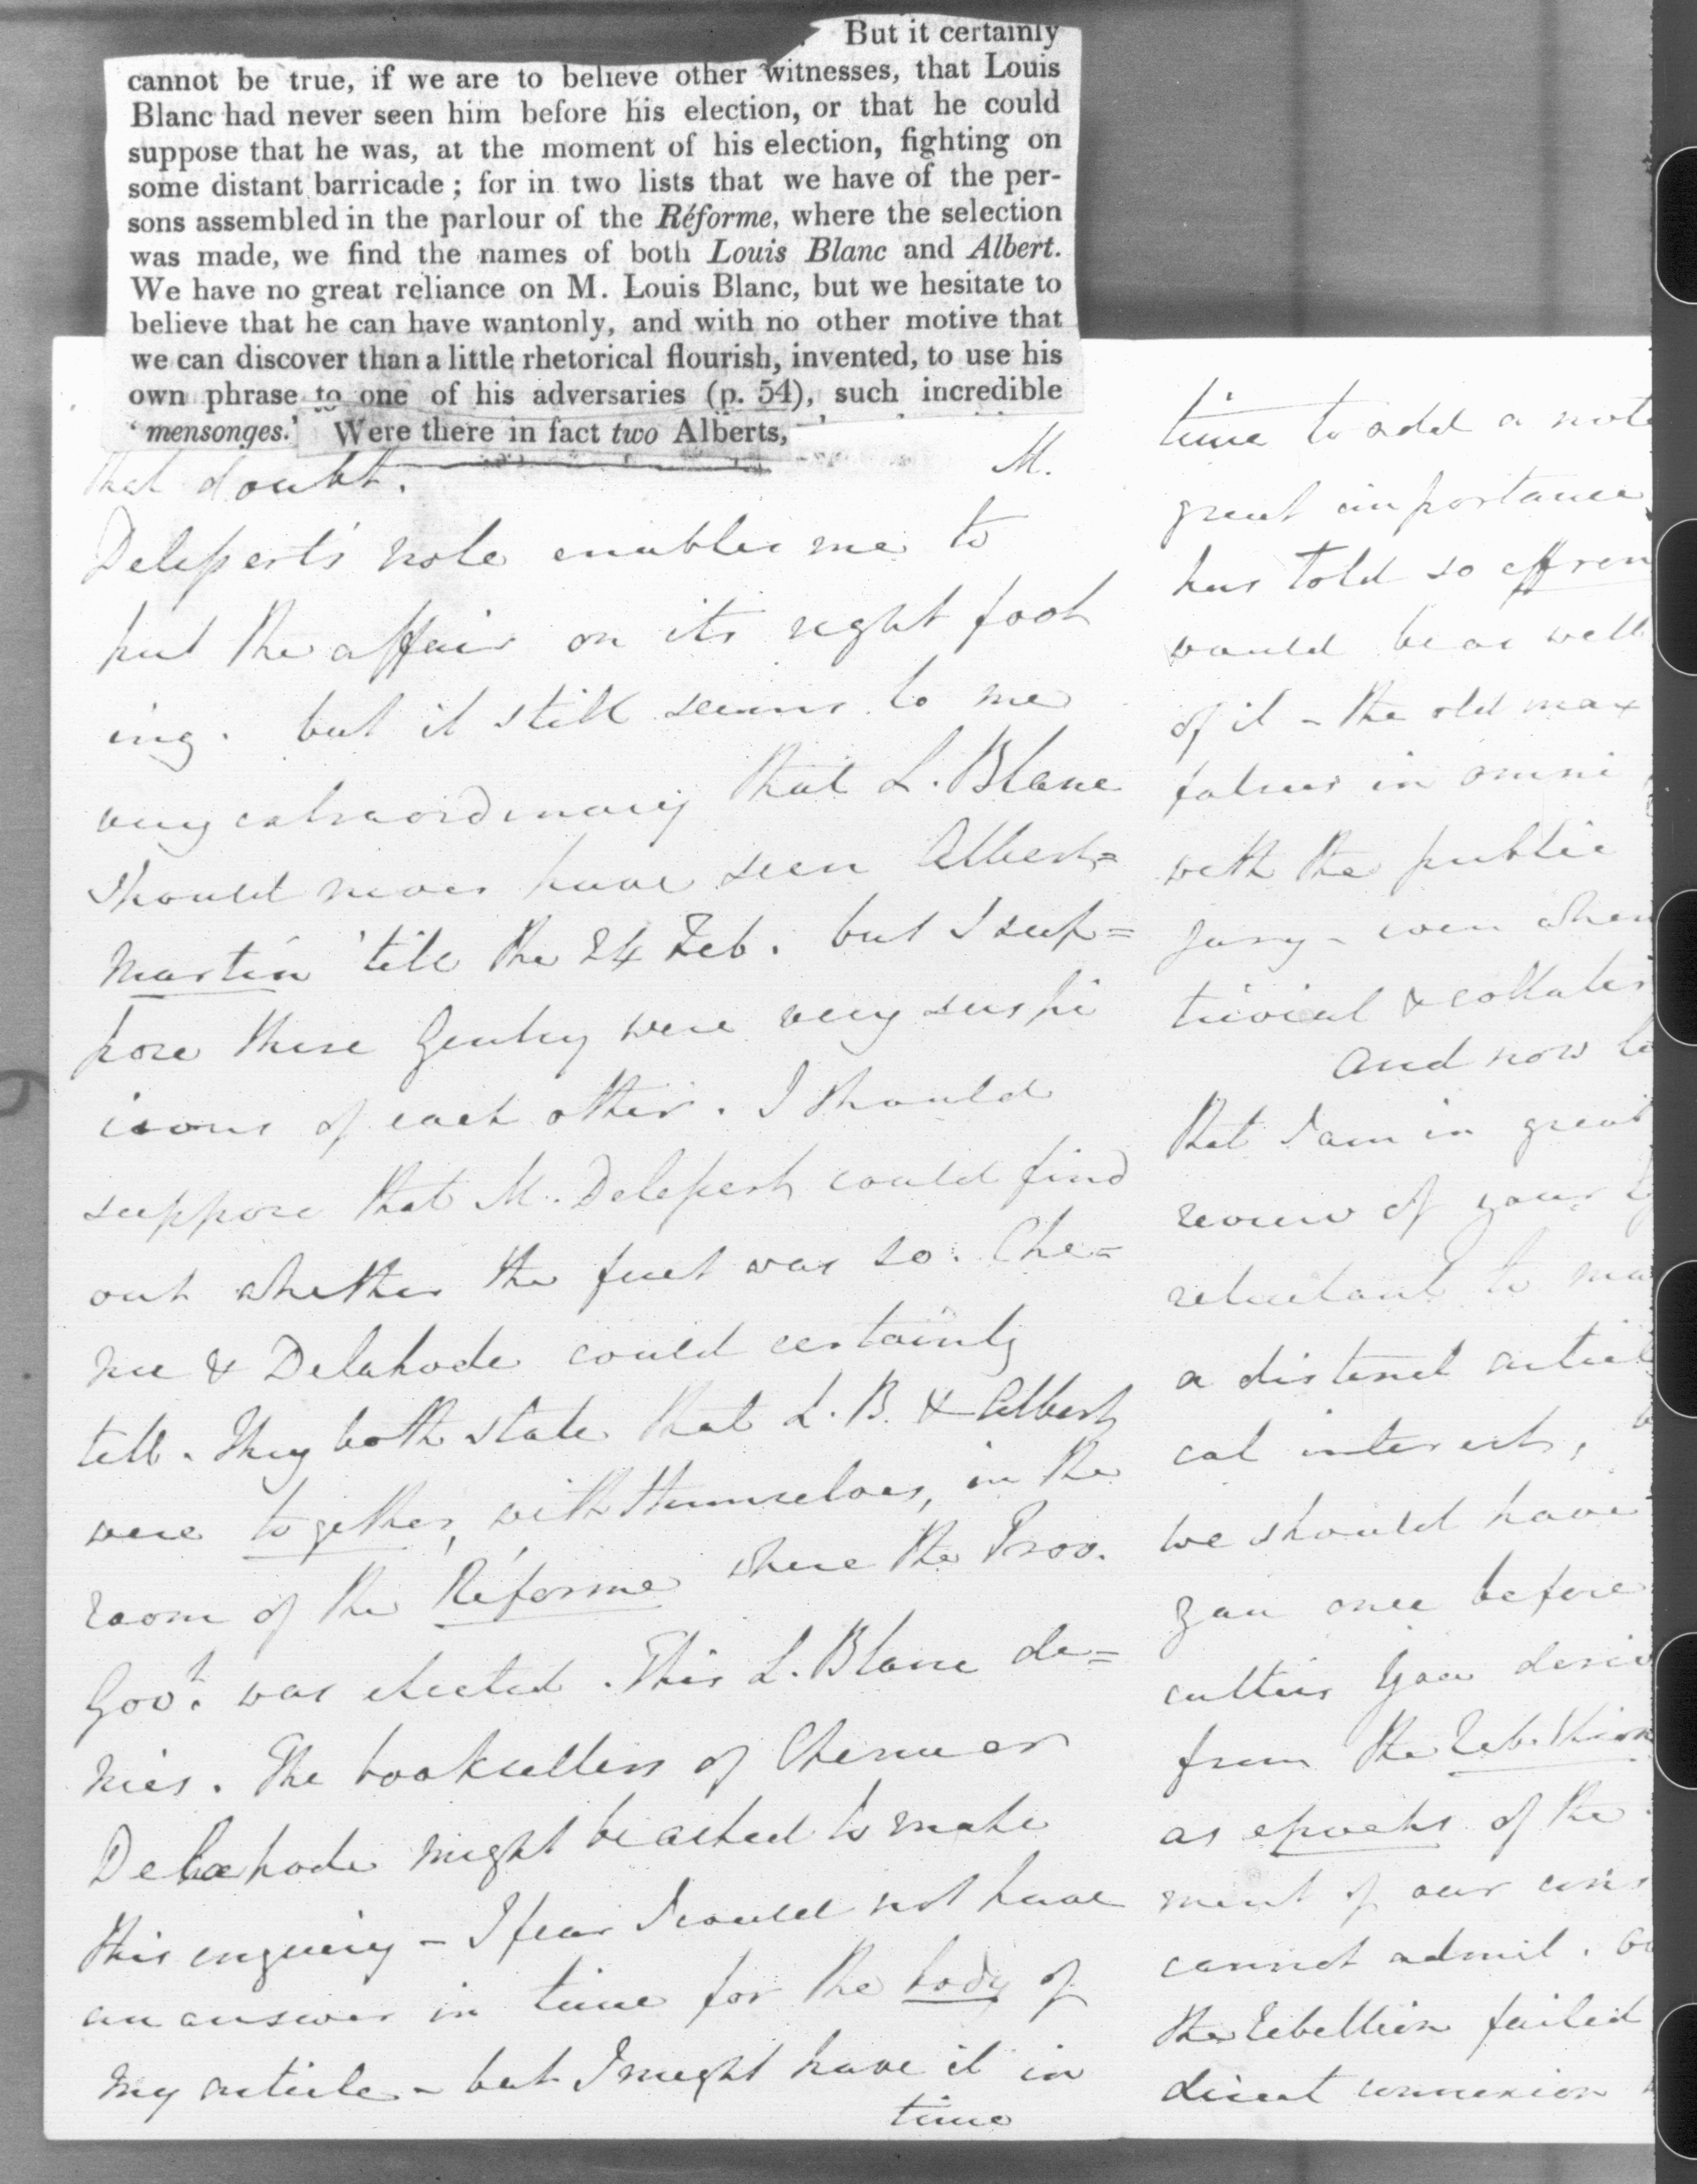 But it certainly
cannot be true, if we are to believe other witnesses, that Louis
Blanc had never seen him before his election, or that he could
suppose that he was, at the moment of his election, fighting on
some distant barricade ; for in two lists that we have of the per-
sons assembled in the parlour of the Réforme, where the selection
was made, we find the names of both Louis Blanc and Albert.
We have no great reliance on M. Louis Blanc, but we hesitate to
believe that he can have wantonly, and with no other motive that
we can discover than a little rhetorical flourish, invented, to use his
own phrase to one of his adversaries (p. 54), such incredible
‘mensonges.’ Were there in fact two Alberts,
that doubt. M.
Delessert's note enables me to
put the affair on its right foot
ing. but it still seems to me
very extraordinary that L. Blanc
should never have seen Albert=
Martin 'till the 24 Feb. but I sup=
pose these Gentry were very suspi
cious of each other. I should
suppose that M. Delessert could find
out whether the fact was so. Che=
nu & Delahode could certainly
tell. They both state that L. B. & Albert
were together, with themselves, in the
room of the Réforme where the Prov.
Govt. was elected. This L. Blanc de=
nies. The booksellers of Chenu or
Delahode might be asked to make
this enquiry - I fear I could not have
an answer in time for the body of
my article - but I might have it in
time
time to add a note
great importance
has told so effron
would be as well
of it - the old max
falsus in omni
with the public
jury - even when
trivial & collater
And now
that I am in great
review of your
reluctant to ma
a distinct articl
cal interest,
we should have
you once before
cutties you
from the Rebellion
as epochs of the
ment of our cons
cannot admit.
the Rebellion failed
direct connexion